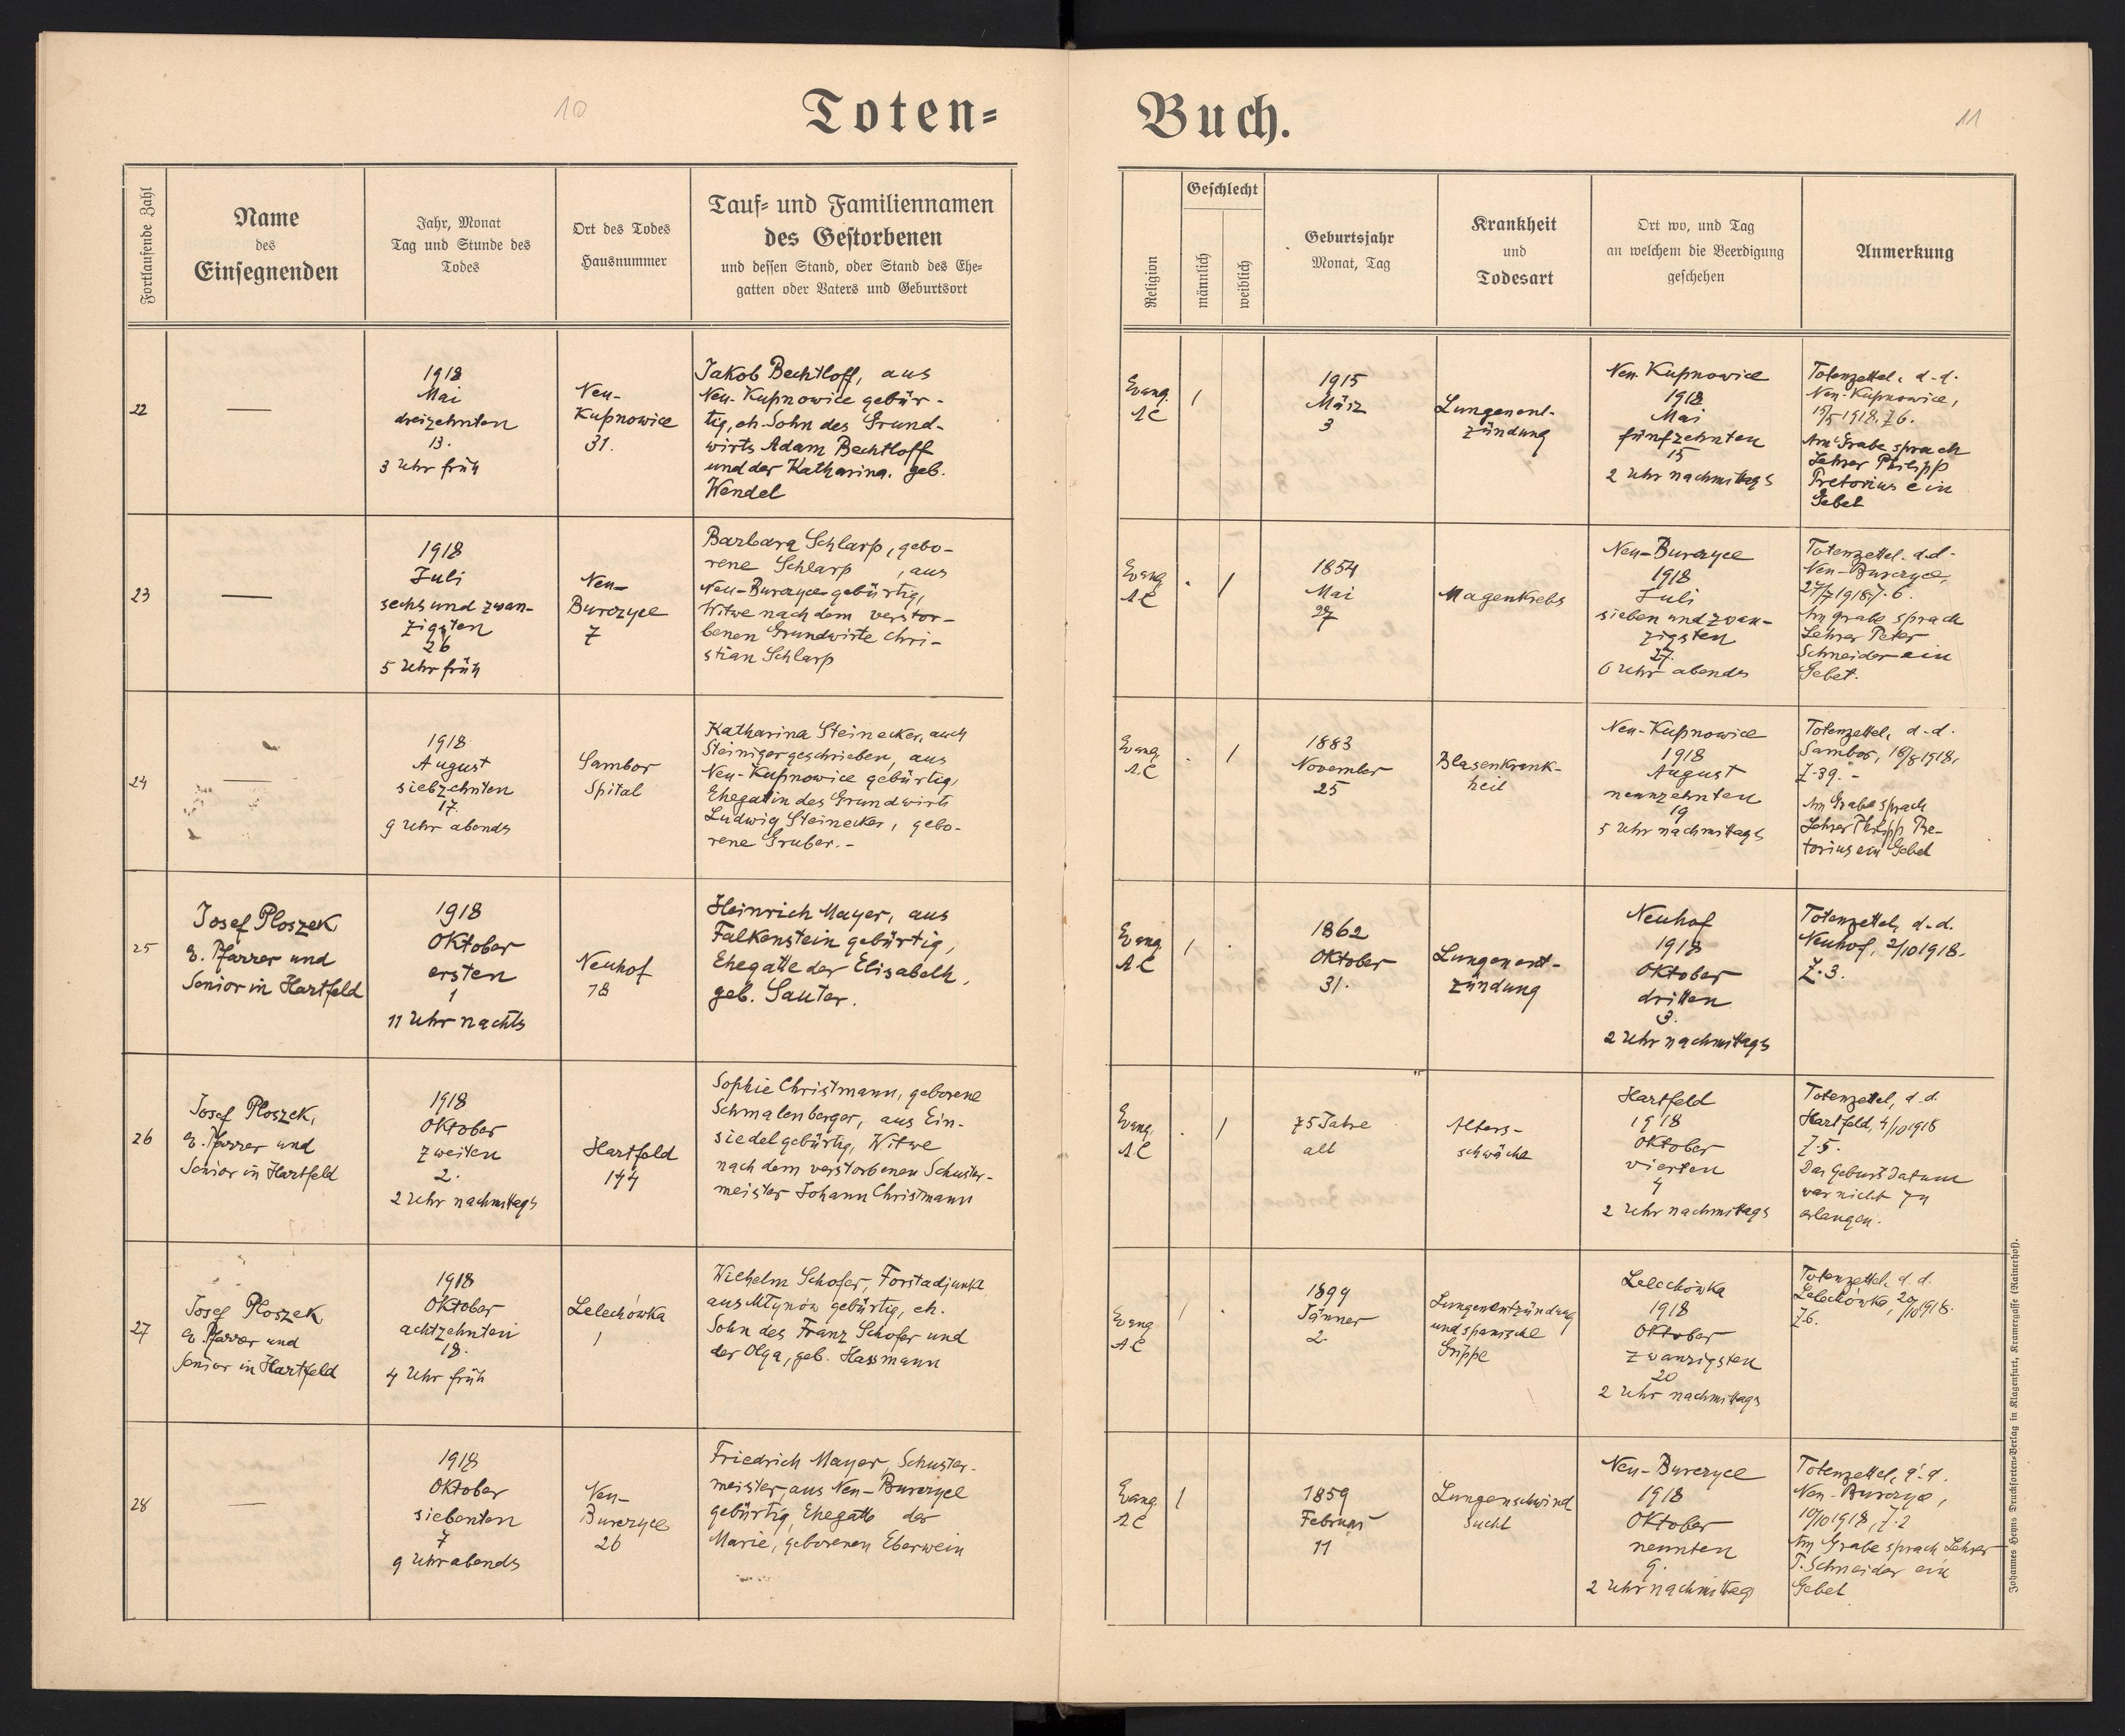 10
Toten-
Fortlaufende Zahl
Name
des
Einsegnenden
Jahr, Monat
Tag und Stunde des
Todes
Ort des Todes
Hausnummer
Tauf- und Familiennamen
des Gestorbenen
und dessen Stand, oder Stand des Ehe-
gatten oder Vaters und Geburtsort
22
—
1918
Mai
dreizehnten
13.
3 Uhr früh
Neu-
Kupnowice
31.
Jakob Bechtloff, aus
Neu-Kupnowice gebür-
tig, eh. Sohn des Grund-
wirts Adam Bechtloff
und der Katharina, geb.
Wendel
23
—
1918
Juli
sechs und zwan-
zigsten
26
5 Uhr früh
Neu-
Burczyce
7
Barbara Schlarp, gebo-
rene Schlarp, aus
Neu-Burczyce gebürtig,
Witwe nach dem verstor-
benen Grundwirte Chri-
stian Schlarp
24
—
1918
August
siebzehnten
17.
9 Uhr abends
Sambor
Spital
Katharina Steinecker, auch
Steiniger geschrieben, aus
Neu-Kupnowice gebürtig,
Ehegattin des Grundwirts
Ludwig Steinecker, gebo-
rene Gruber.-
25
Josef Ploszek,
ev. Pfarrer und
Senior in Hartfeld
1918
Oktober
ersten
1
11 Uhr nachts
Neuhof
78
Heinrich Mayer, aus
Falkenstein gebürtig,
Ehegatte der Elisabeth,
geb. Sauter.
26
Josef Ploszek,
ev. Pfarrer und
Senior in Hartfeld
1918
Oktober
zweiten
2.
2 Uhr nachmittags
Hartfeld
144
Sophie Christmann, geborene
Schmalenberger, aus Ein-
siedel gebürtig, Witwe
nach dem verstorbenen Schuster-
meister Johann Christmann
27
Josef Ploszek
ev. Pfarrer und
Senior in Hartfeld
1918
Oktober
achtzehnten
18.
4 Uhr früh
Lelechówka
1
Wilhelm Schofer, Forstadjunkt
aus Młynów gebürtig, eh.
Sohn des Franz Schofer und
der Olga, geb. Hassmann
28
—
1918
Oktober
siebenten
7
9 Uhr abends
Neu-
Burczyce
26
Friedrich Mayer, Schuster-
meister, aus Neu-Burczyce
gebürtig, Ehegatte der
Marie, geborenen Eberwein
Buch.
11
Religion
Geschlecht
männlich
weiblich
Geburtsjahr
Monat, Tag
Krankheit
und
Todesart
Ort wo, und Tag
an welchem die Beerdigung
geschehen
Anmerkung
Evang.
A C
1
1915
März
3
Lungenent-
zündung
Neu-Kupnowice
1918
Mai
fünfzehnten
15
2 Uhr nachmittags
Totenzettel, d. d.
Neu-Kupnowice,
15/5 1918, Z 6.
Am Grabe sprach
Lehrer Philipp
Pretorius ein
Gebet
Evang.
A C
. 1
1854
Mai
27
Magenkrebs
Neu-Burczyce
1918
Juli
sieben und zwan-
zigsten
27.
6 Uhr abends
Totenzettel. d.d.
Neu-Burczyce,
27/7 1918, Z. 6.
Am Grabe sprach
Lehrer Peter
Schneider ein
Gebet.
Evang.
A. C
. 1
1883
November
25
Blasenkrank-
heit
Neu-Kupnowice
1918
August
neunzehnten
19
5 Uhr nachmittags
Totenzettel, d. d.
Sambor, 18/8 1918,
Z. 39. -
Am Grabe sprach
Lehrer Philipp Pre-
torius ein Gebet
Evang.
A C
1 .
1862
Oktober
31.
Lungenent-
zündung
Neuhof
1918
Oktober
dritten
3.
2 Uhr nachmittags
Totenzettel, d. d.
Neuhof, 2/10 1918.
Z. 3.
Evang.
A C
. 1
75 Jahre
alt
Alters-
schwäche
Hartfeld
1918
Oktober
vierten
4
2 Uhr nachmittags
Totenzettel, d. d.
Hartfeld, 4/10 1918
Z. 5.
Das Geburtsdatum
war nicht zu
erlangen.
Evang
A C
1 .
1899
Jänner
2.
Lungenentzündung
und spanische
Grippe
Lelechówka
1918
Oktober
zwanzigsten
20
2 Uhr nachmittags
Totenzettel, d. d.
Lelechówka, 20/10 1918.
Z 6.
Evang.
A C
1
1859
Februar
11
Lungenschwind
sucht
Neu-Burczyce
1918
Oktober
neunten
9.
2 Uhr nachmittag
Totenzettel, d. d.
Neu-Burczyce,
10/10 1918, Z. 2
Am Grabe sprach Lehrer
P. Schneider ein
Gebet
Johannes Heyns Drucksorten-Verlag in Klagenfurt, Kramergasse (Rainerhof).